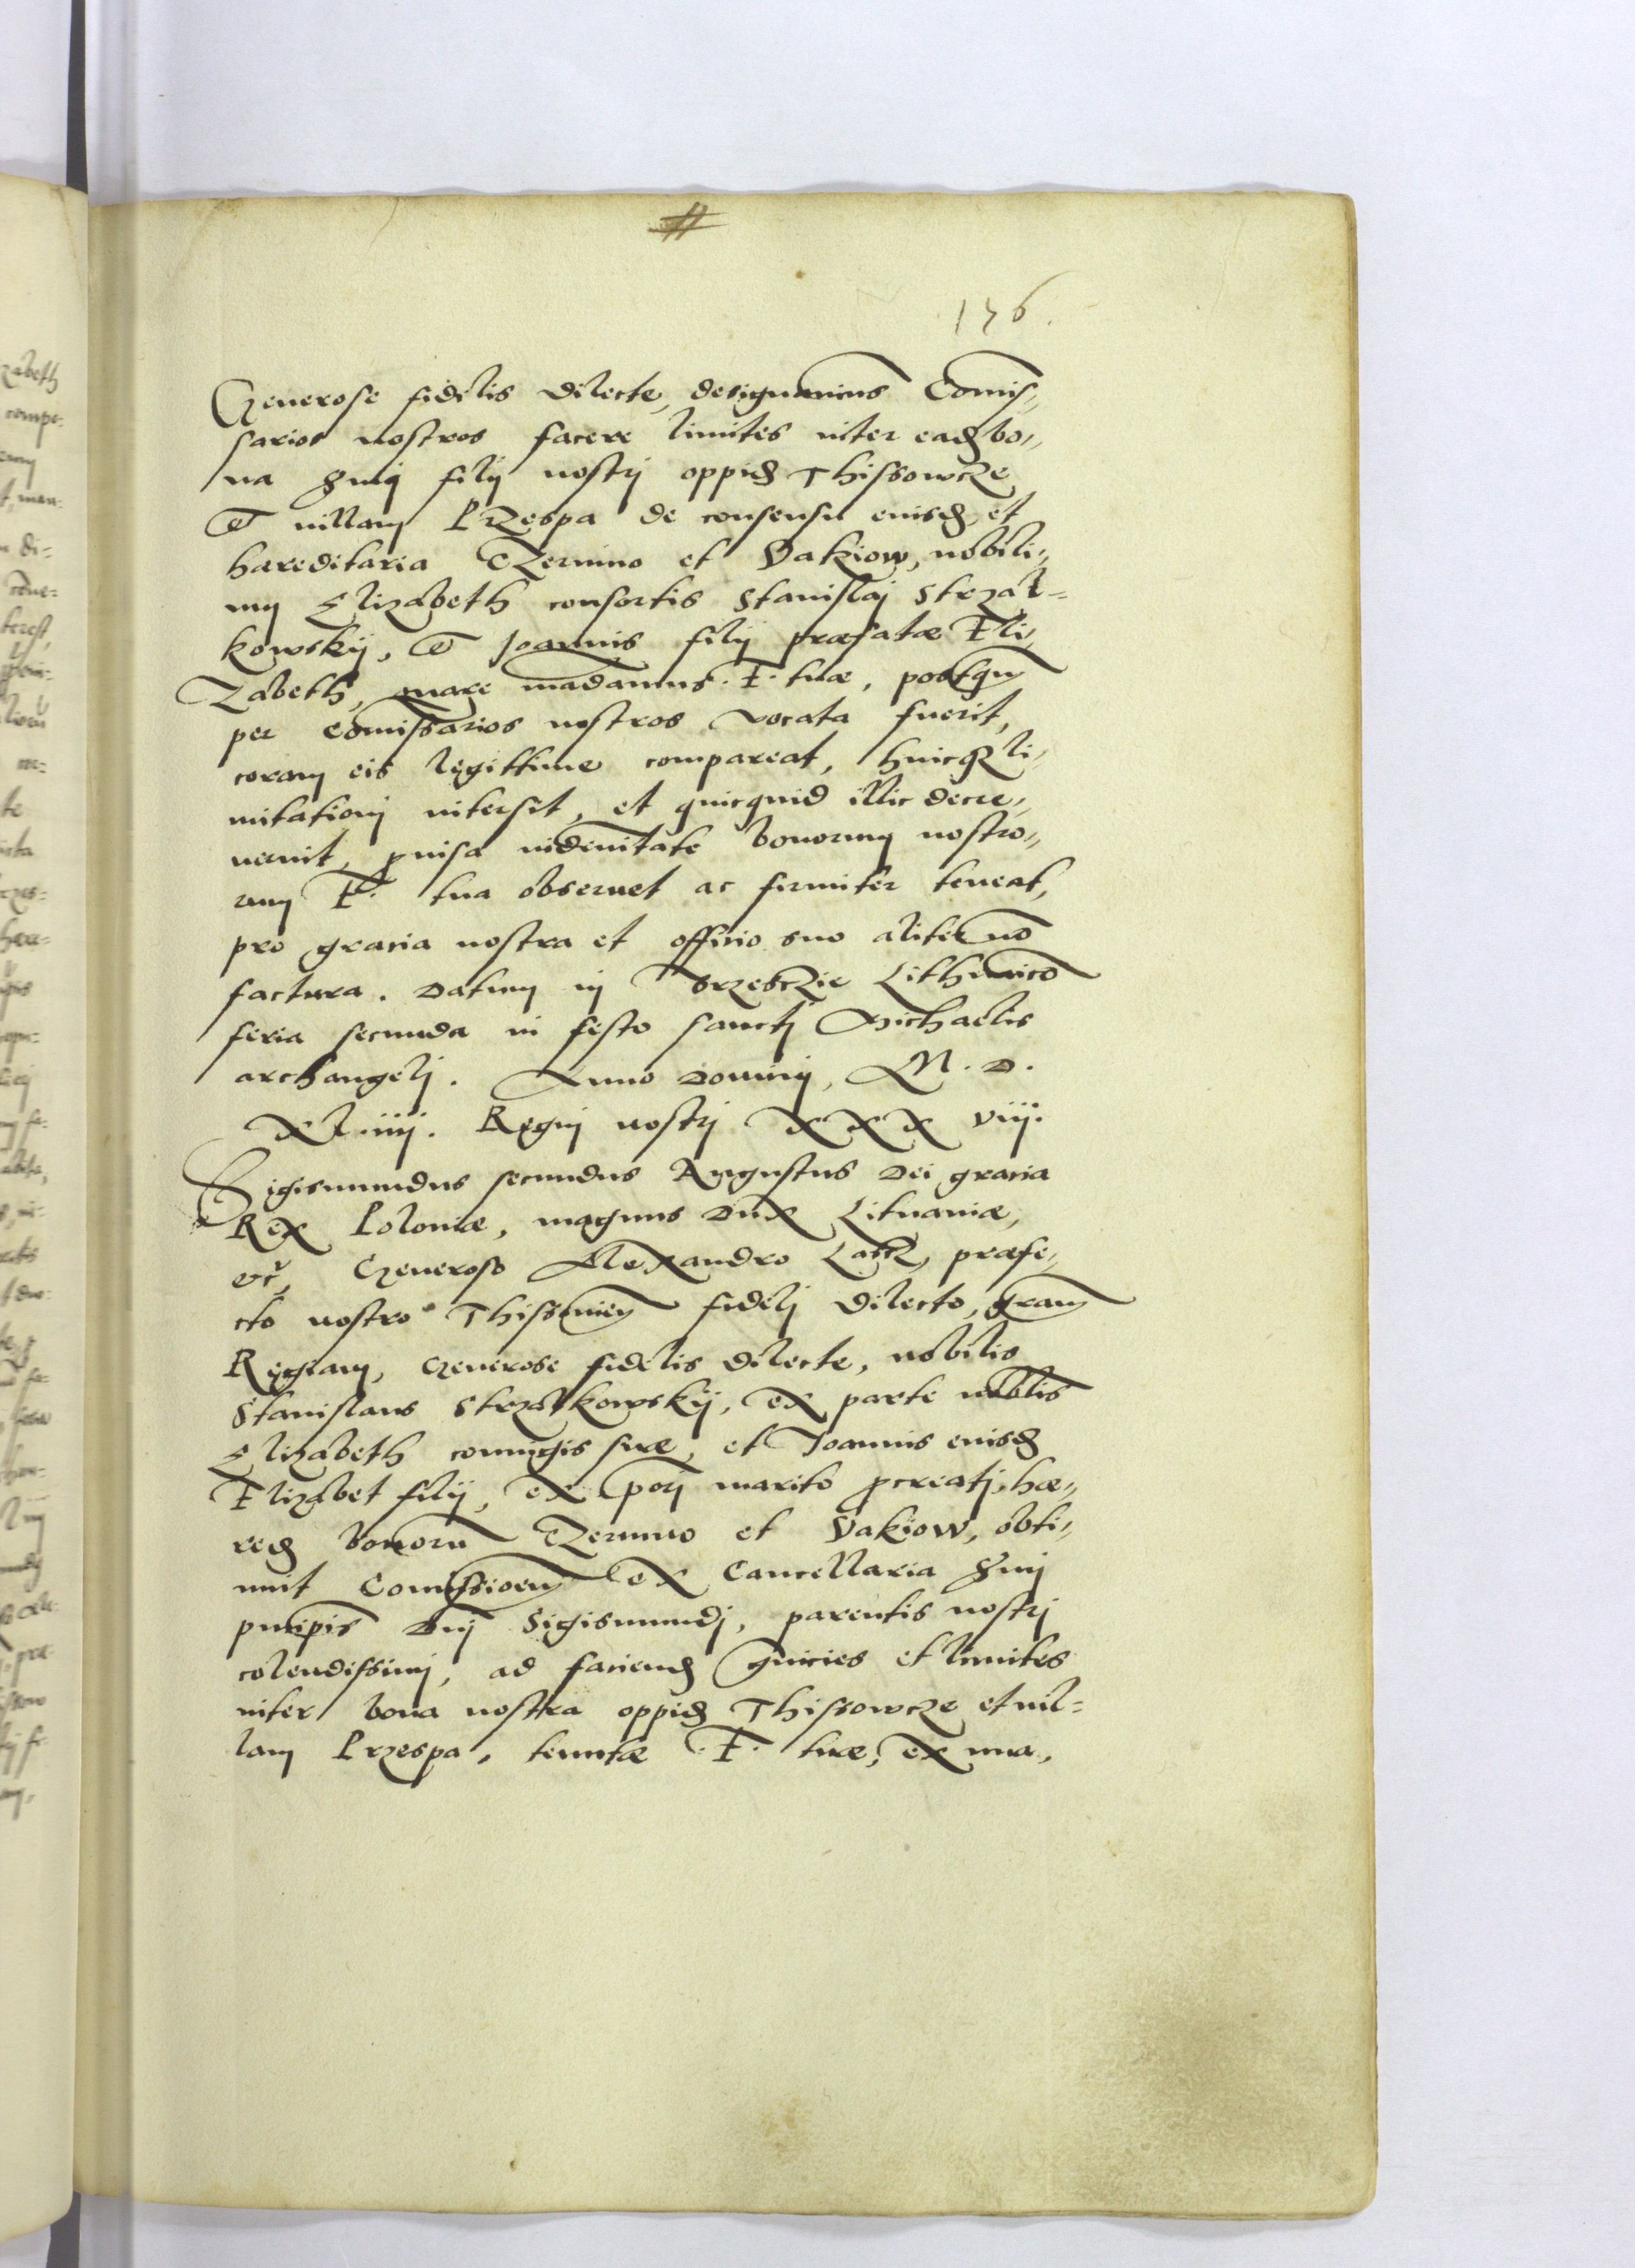 136.
Generose fidelis dilecte, designauimus Comis„
sarios nostros facere limites inter eadē bo„
na Srmi filij nostrj oppidū Thissowcze
et uillam Przespa de consensu eiusdē, et
hæreditaria Czermno et Vakiow, nobili„
um Elizabeth consortis Stanislaj Strzal=
kowskij, et Joannis filij præfatæ Eli„
zabeth, quare mādamus F. tuæ, postqm̄
per Comissarios nostros vocata fuerit,
coram eis legittime compareat, huicq3 li„
mitationj intersit, et quicquid illic decre„
uerint, p̱uisa indēnitate bonorum nostro„
rum F. tua obseruet ac firmiter teneat,
pro gracia nostra et officio suo aliter nō
factura. Datum in Brzesczie Lithuanicō
feria secunda in festo sanctj Michaelis
archangelj. Anno dominj, M. D.
XLiiij. Regnj nostrj XXX viij.
Sigismundus secundus Augustus Dei gracia
Rex Poloniæ, magnus Dux Lituaniæ,
etc̄, Generoso Alexandro Lascz, præfe„
cto nostro Thissouień fidelj dilecto, grām
Regiam, Generose fidelis dilecte, nobilis
Stanislaus Strzalkowskij, ex parte nobĺis
Elizabeth coniugis suæ, et Joannis eiusdē
Elizabet filij, ex priorj marito p̱creatj, hæ„
redū bonorū Czermno et Vakiow, obti„
nuit Comissioem̄ ex Cancellaria Srmi
principis Dnj Sigismundj, parentis nostrj
colendissimj, ad faciendū gruicies et limites
inter bona nostra oppidū Thissowcze et uil=
lam Przespa, tenutæ F. tuæ, ex una,